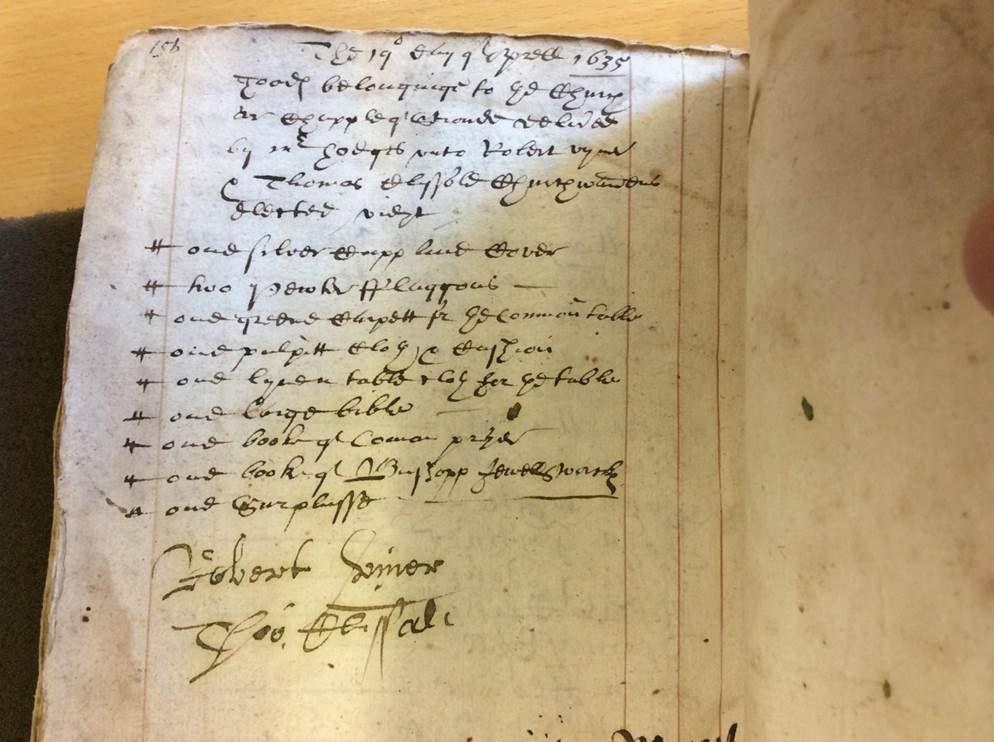 The 19th day of Aprell 1635
Goods belonginge to the Church
or Chapple of delivered
by mr Hodges unto Robert vyner
& Thomas Churchwardens
elected vidzt
# one silver Cupp and Cover
# two Pewter fflaggons
# one greene Carpett for the Comon table
# one pulpitt Cloth & Cushion
# one lynen table cloth for the table
# one large bible
# one booke of Comon prayer
# one booke of Bushopp Jewells workes
# one Surplusse
Robert
Tho.